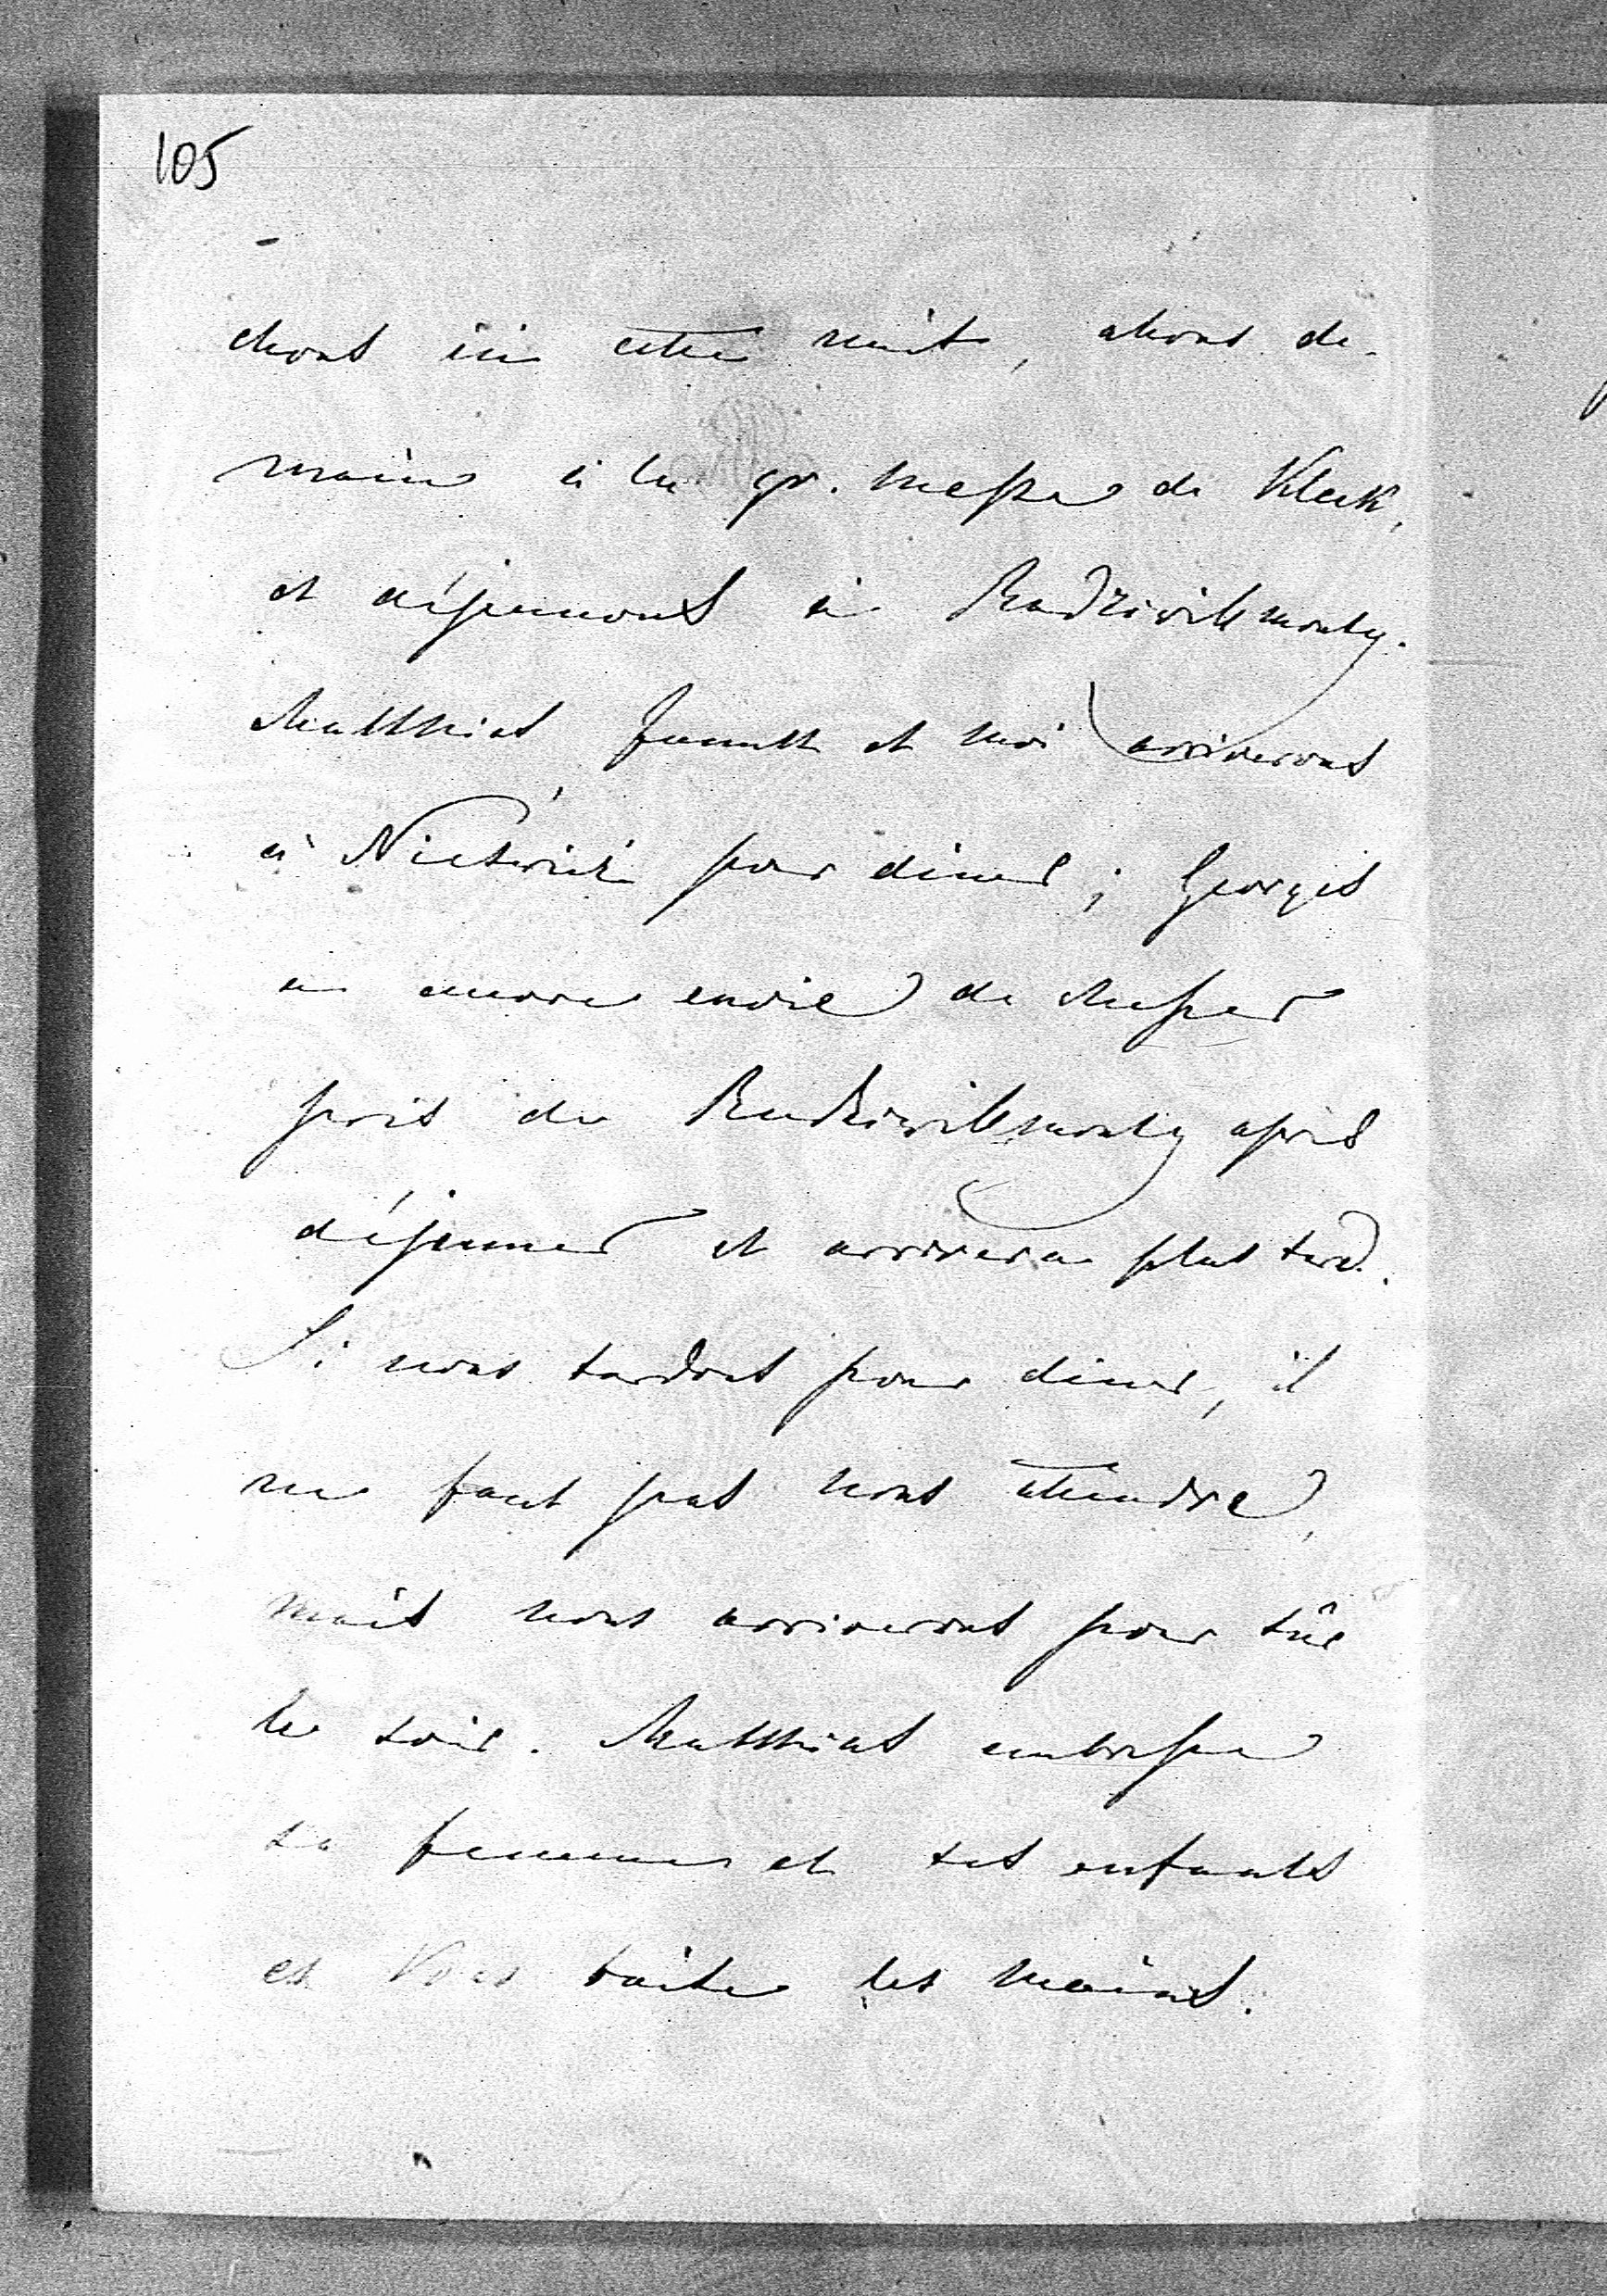 105
chons ici cette nuit, allons de-
main à la gr. messe de Kleck,
et déjeunons à Radziwillmonty.
Matthias et moi arriverons
à Nieśwież pour dîner ; Georges
a encore envie de chasser
près de Radziwillmonty après
déjeuner et arrivera plus tard.
Si nous tardons pour dîner, il
ne faut pas nous attendre,
mais nous arriverons pour sûr
le soir. Matthias embrasse
sa femme et ses enfants
et Vous baise les mains.